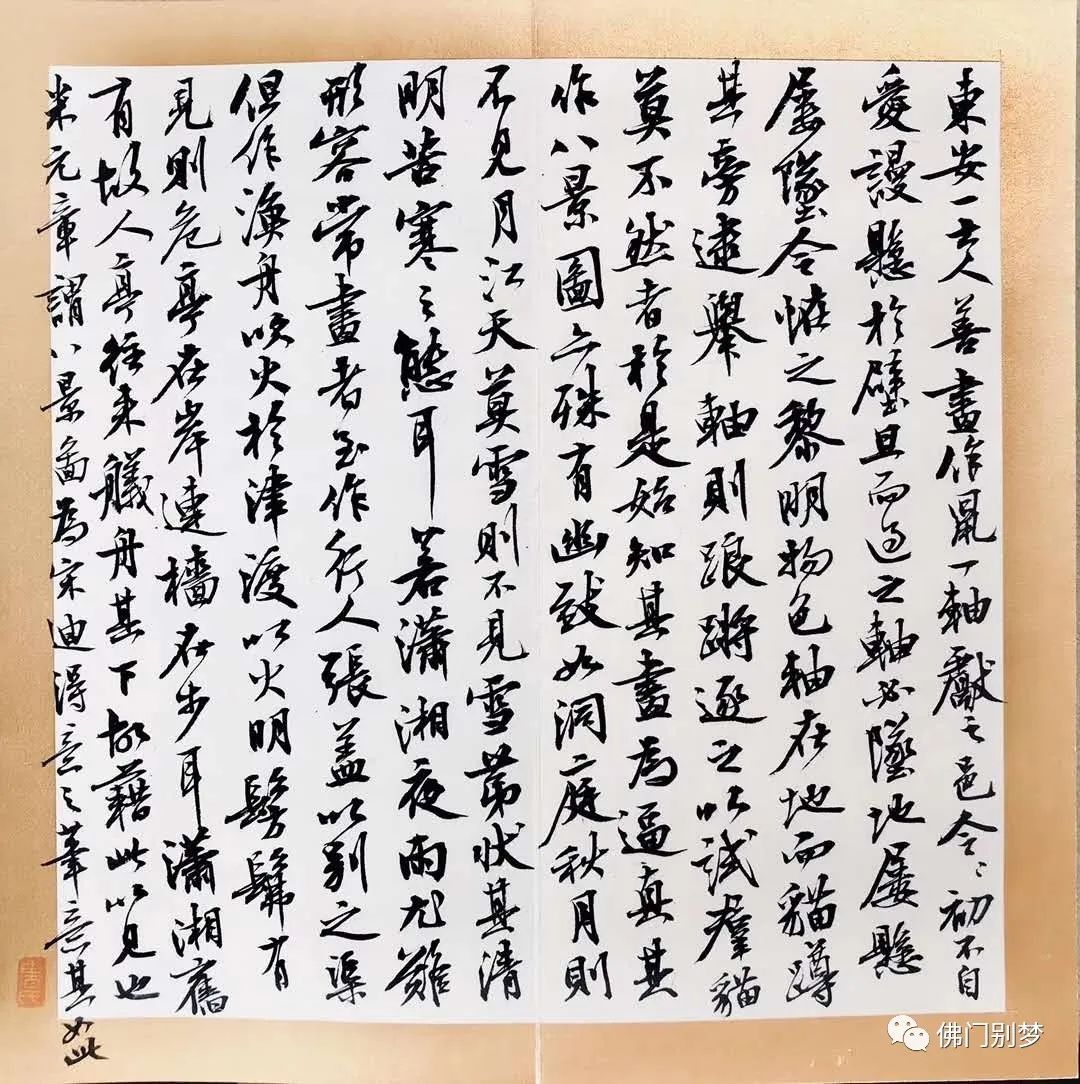 東安一士人善畫作鼠一軸獻之邑令令初不自
愛謾懸於壁旦而過之軸必墜地屢懸
屢墜令怪之黎明物色軸在地而貓蹲
其旁逮舉軸則踉蹡逐之以試群貓
莫不然者於是始知其畫為逼真其
作八景圖亦殊有幽致如洞庭秋月則
不見月江天莫雪則不見雪第狀其清
明苦寒之態耳若瀟湘夜雨尤難
形容常畫者至作行人張蓋以別之渠
但作漁舟吹火於津渡以火明髣髴有
見則危亭在岸連檣在步耳瀟湘舊
有故人亭往來艤舟其下故藉此以見也
米元章謂八景圖為宋迪得意之筆意其如此
佛门别梦